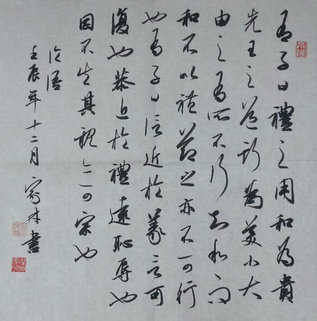 有子曰禮之用和為貴
先王之道斯為美小大
由之有所不行知和而
和不以禮節之亦不可行
也有子曰信近於義言可
復也恭近於禮遠恥辱也
因不失其親亦可宗也
論語
壬辰年十二月書